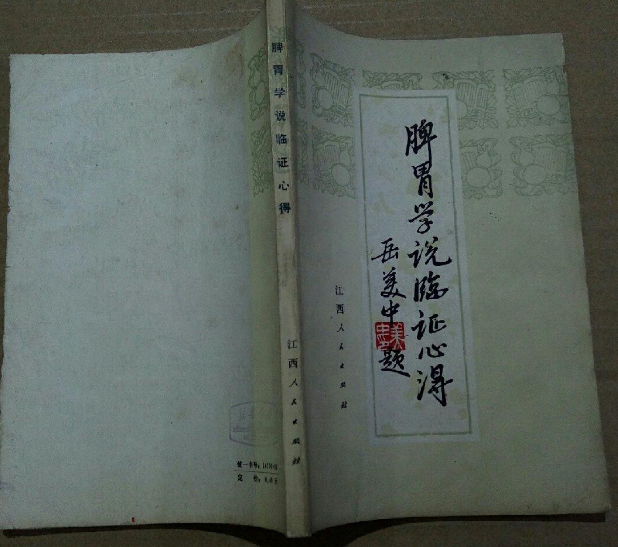 脾胃学说临证心得
岳美中题
江西人民出版社
脾胃学说临证心得
江西人民出版社
统一书号：
定价：